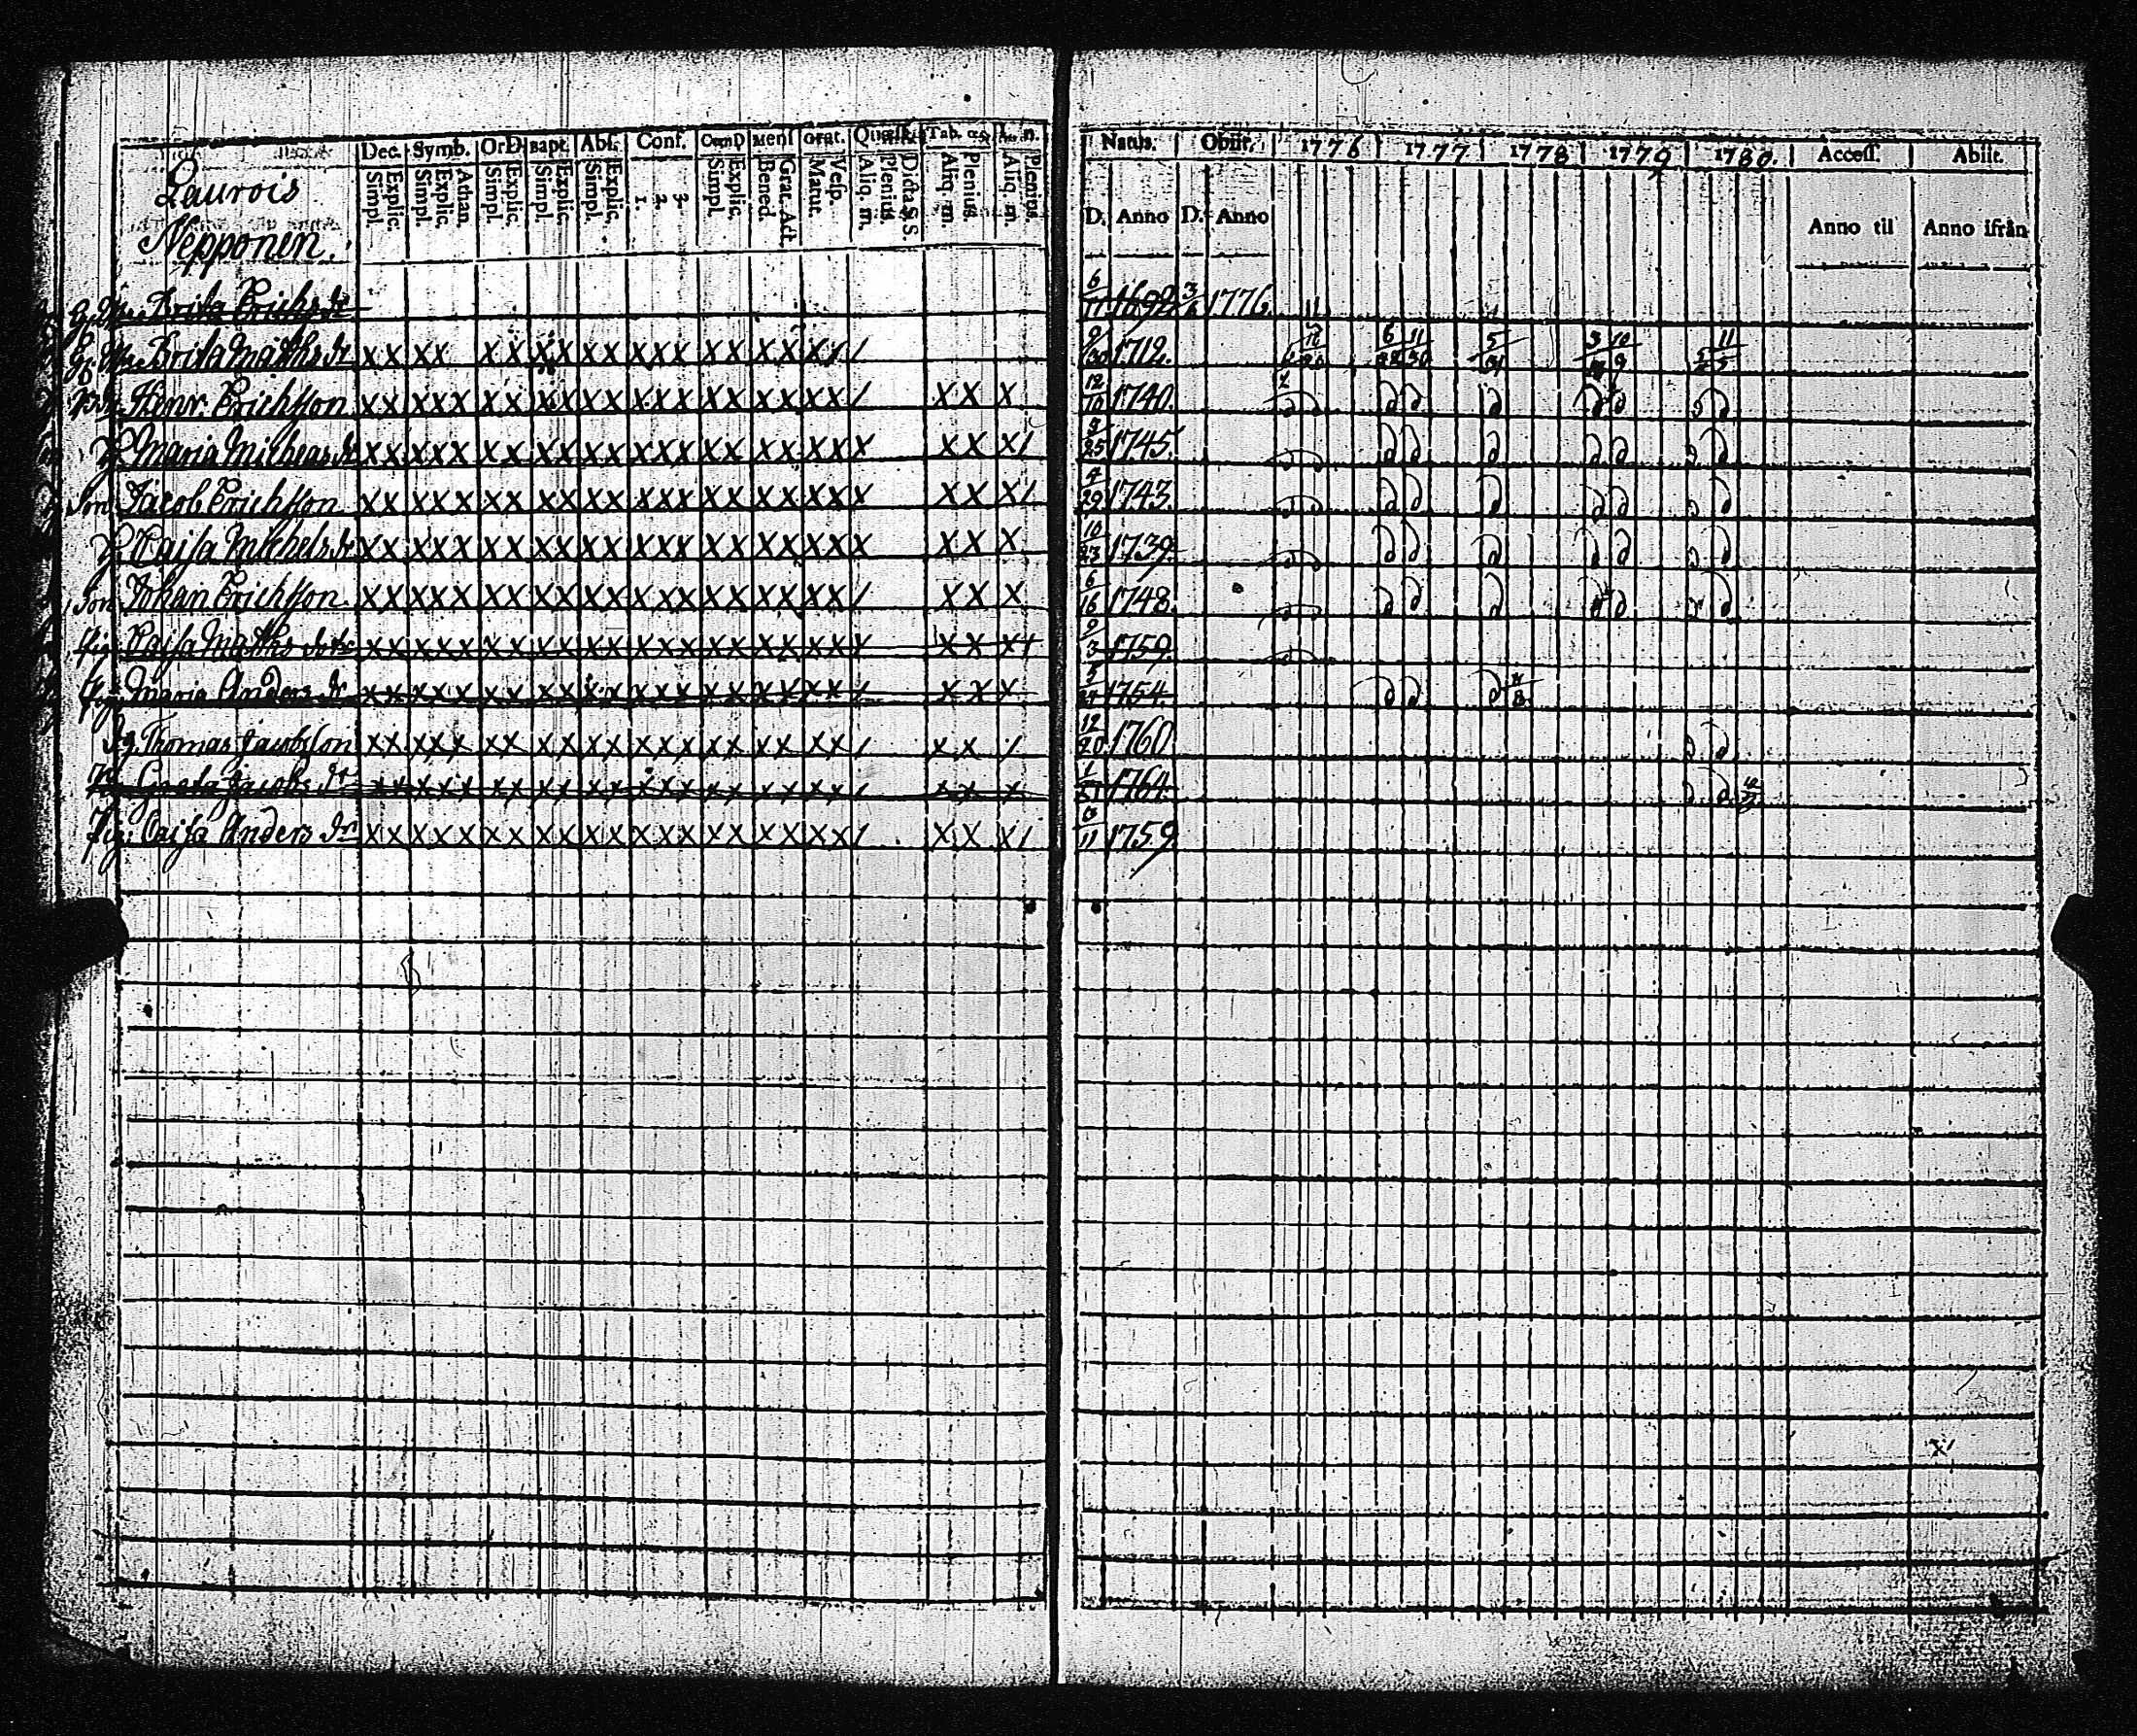 Dec. Symb. OrD. Bapt. Abs. Conf. CœnD Mens Grat. Quæst. Tab. œc. n.
Explic. Simpl. Athan. Explic. Simpl. Explic. Simpl. Explic. Simpl. Explic. Simpl. 1. 2. 3. Explic. Simpl. Grat. Act. Bened. Vesp. Matut. Dicta S.S. Plenius Aliq. m. Plenius. Aliq. m. Plenius Aliq. m.
Natus. Obiit. 1776 1777 1778 1779 1780. Access. Abiit.
D. Anno D. Anno Anno til Anno ifrån
Laurois
Nepponen.
Brita Erichs dr 6/11 1692 3/ 1776.
Brita Matths dr XX XX XX XX XX XXX XX XX XX / 9/30 1712. 6/22 11/30 5/31 3/ 10/9 11/5
Henr. Erichsson XX XXX XX XX XX XXX XX XX XX / XX X 12/10 1740.
H. Maria Michears dr XX XXX XX XX XX XXX XX XX XX X XX X/ 3/25 1745.
Son Jacob Erichsson XX XXX XX XX XX XXX XX XX XX X XX X/ 4/29 1743.
H. Caisa Michels dr XX XXX XX XX XX XXX XX XX XX X XX X 10/23 1739.
Son Johan Erichsson XX XXX XX XX XX XXX XX XX XX / XX X 6/16 1748.
Pig. Caisa Matths dotr XX XXX XX XX XX XXX XX XX XX X XX X 9/3 1759.
Pig. Maria Anders dr XX XXX XX XX XX XXX XX XX XX / XX X 1754.
Dg. Thomas Jacobsson XX XXX XX XX XX XXX XX XX XX / XX / 12/20 1760
Greta Jacobs dr XX XXX XX XX XX XXX XX XX XX / XX X 1764.
Pig: Caisa Anders dr XX XXX XX XX XX XXX XX XX XX / XX X/ 1759
X